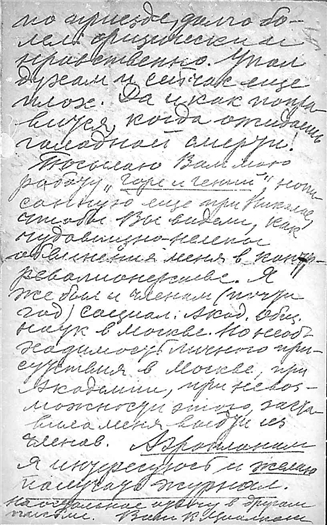 по приезде, долго бо-
лел физически и
нравственно. Упал
духом и сейчас еще
плох. Да и как попра-
виться, когда ожидаешь
голодной смерти!
Посылаю Вам мою
работу „Горе и гений", напи-
санную еще при Николае,
чтобы Вы видели, как
чудовищно-нелепы
обвинения меня в контр-
революционерстве. Я
же был и членом (почти
год) Социал. Акад. Общ.
наук в Москве. Но необ-
ходимость личного при-
сутствия в Москве, при
Академии, при невоз-
можности этого, заста-
вила меня выдти из
членов. Аэропланом
я интересуюсь и желаю
получать журнал.
На остальное отвечу в другом
письме. Ваш К. Циолков